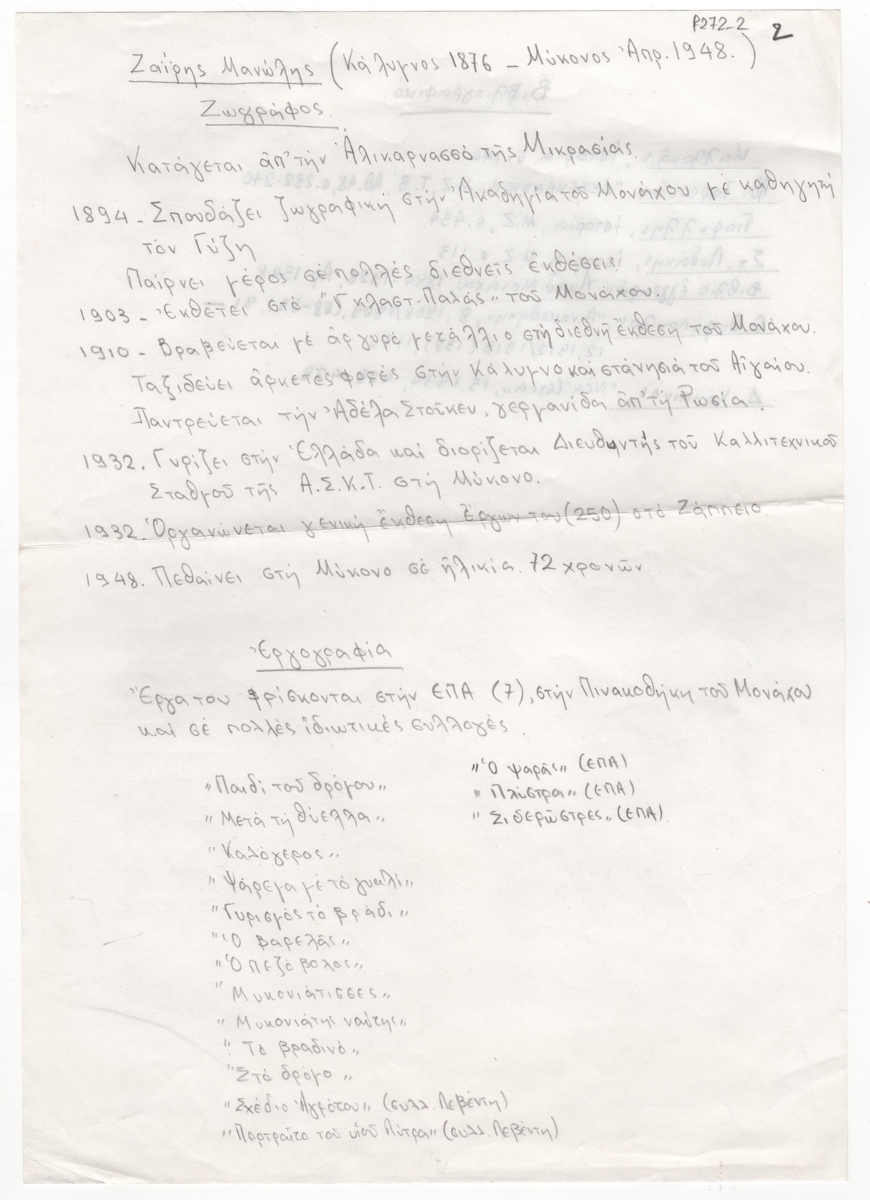 P272-2 2
Ζαΐρης Μανώλης (Κάλυμνος 1876 – Μύκονος Ἀπρ. 1948.)
Ζωγράφος.
Κατάγεται ἀπ' τήν Ἁλικαρνασσό τῆς Μικρασίας.
1894 - Σπουδάζει ζωγραφική στήν Ἀκαδημία τοῦ Μονάχου μέ καθηγητή
τόν Γύζη
Παίρνει μέρος σέ πολλές διεθνεῖς ἐκθέσεις.
1903 - Ἐκθέτει στό "Γκλαστ-Παλάς" τοῦ Μονάχου.
1910 - Βραβεύεται μέ ἀργυρό μετάλλιο στή διεθνῆ ἔκθεση τοῦ Μονάχου.
Ταξιδεύει ἀρκετές φορές στήν Κάλυμνο καί στά νησιά τοῦ Αἰγαίου.
Παντρεύεται τήν Ἀδέλα Στοῦκεν, γερμανίδα ἀπ' τή Ρωσία.
1932. Γυρίζει στήν Ἑλλάδα καί διορίζεται Διευθυντής τοῦ Καλλιτεχνικοῦ
Σταθμοῦ τῆς Α.Σ.Κ.Τ. στή Μύκονο.
1932. Ὀργανώνεται γενική ἔκθεση ἔργων του (250) στό Ζάππειο.
1948. Πεθαίνει στή Μύκονο σέ ἡλικία 72 χρονῶν.
Ἐργογραφία
Ἔργα του βρίσκονται στήν ΕΠΑ (7), στήν Πινακοθήκη τοῦ Μονάχου
καί σέ πολλές ἰδιωτικές συλλογές.
"Παιδί τοῦ δρόμου"
"Μετά τή θύελλα"
"Καλόγερος"
"Ψάρεμα μέ τό γυαλί"
"Γυρισμός τό βράδι"
"Ὁ βαρελᾶς"
"Ὁ πεζόβολος"
"Μυκονιάτισσες"
"Μυκονιάτης ναύτης"
"Τό βραδινό"
"Στό δρόμο"
"Σχέδιο Ἀγρότου" (συλλ. Λεβέντη)
"Πορτραῖτο τοῦ υἱοῦ Λύτρα" (συλλ. Λεβέντη)
"Ὁ ψαρᾶς" (ΕΠΑ)
"Πλύστρα" (ΕΠΑ)
"Σιδερώστρες" (ΕΠΑ)